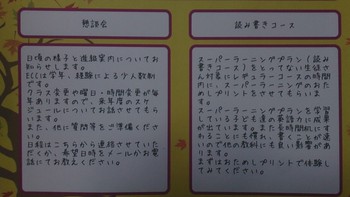 懇談会
日頃の様子と進級案内についてお知らせします。
ECCは学年、経験による少人数制です。
クラス変更や曜日・時間変更が毎年ありますので、来年度のスケジュールについてお話させてもらいます。
また、他に質問等をご準備ください。
日程はこちらから連絡させていただくか、希望日時をメールかお電話にてお教えください。
読み書きコース
スーパーラーニングプラン(読み書きコース)をとってない生徒さん対象にレギュラーコースの時間内に、スーパーラーニングのおためしプリントをさせてもらいます。
スーパーラーニングプランを学習している子ども達の英語力に成果が出ています。また長時間机にすわることにも慣れ、書くことが速いので他の教科にも良い影響があります。
まずはおためしプリントで体験してみてください。